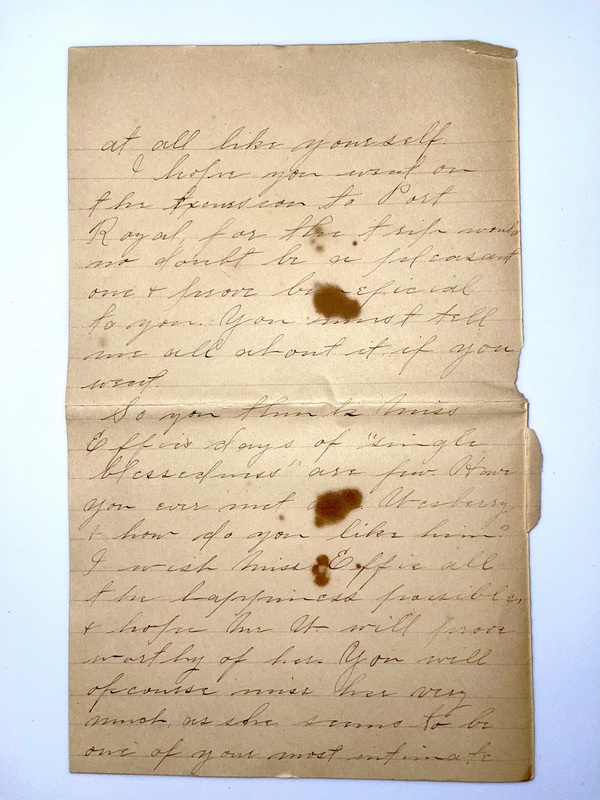 at all like yourself.
I hope you went on
the Excursion to Port
Royal, for the trip would
no doubt be a pleasant
one & prove beneficial
to you. You must tell
me all about it if you
went.
So you think Miss
Effie's days of "single
blessedness" are few. Have
you ever met
& how do you like him?
I wish Miss Effie all
the happiness possible,
& hope Mr W. will prove
worthy of her. You will
ofcourse miss her very
much, as she seems to be
one of your most intimate